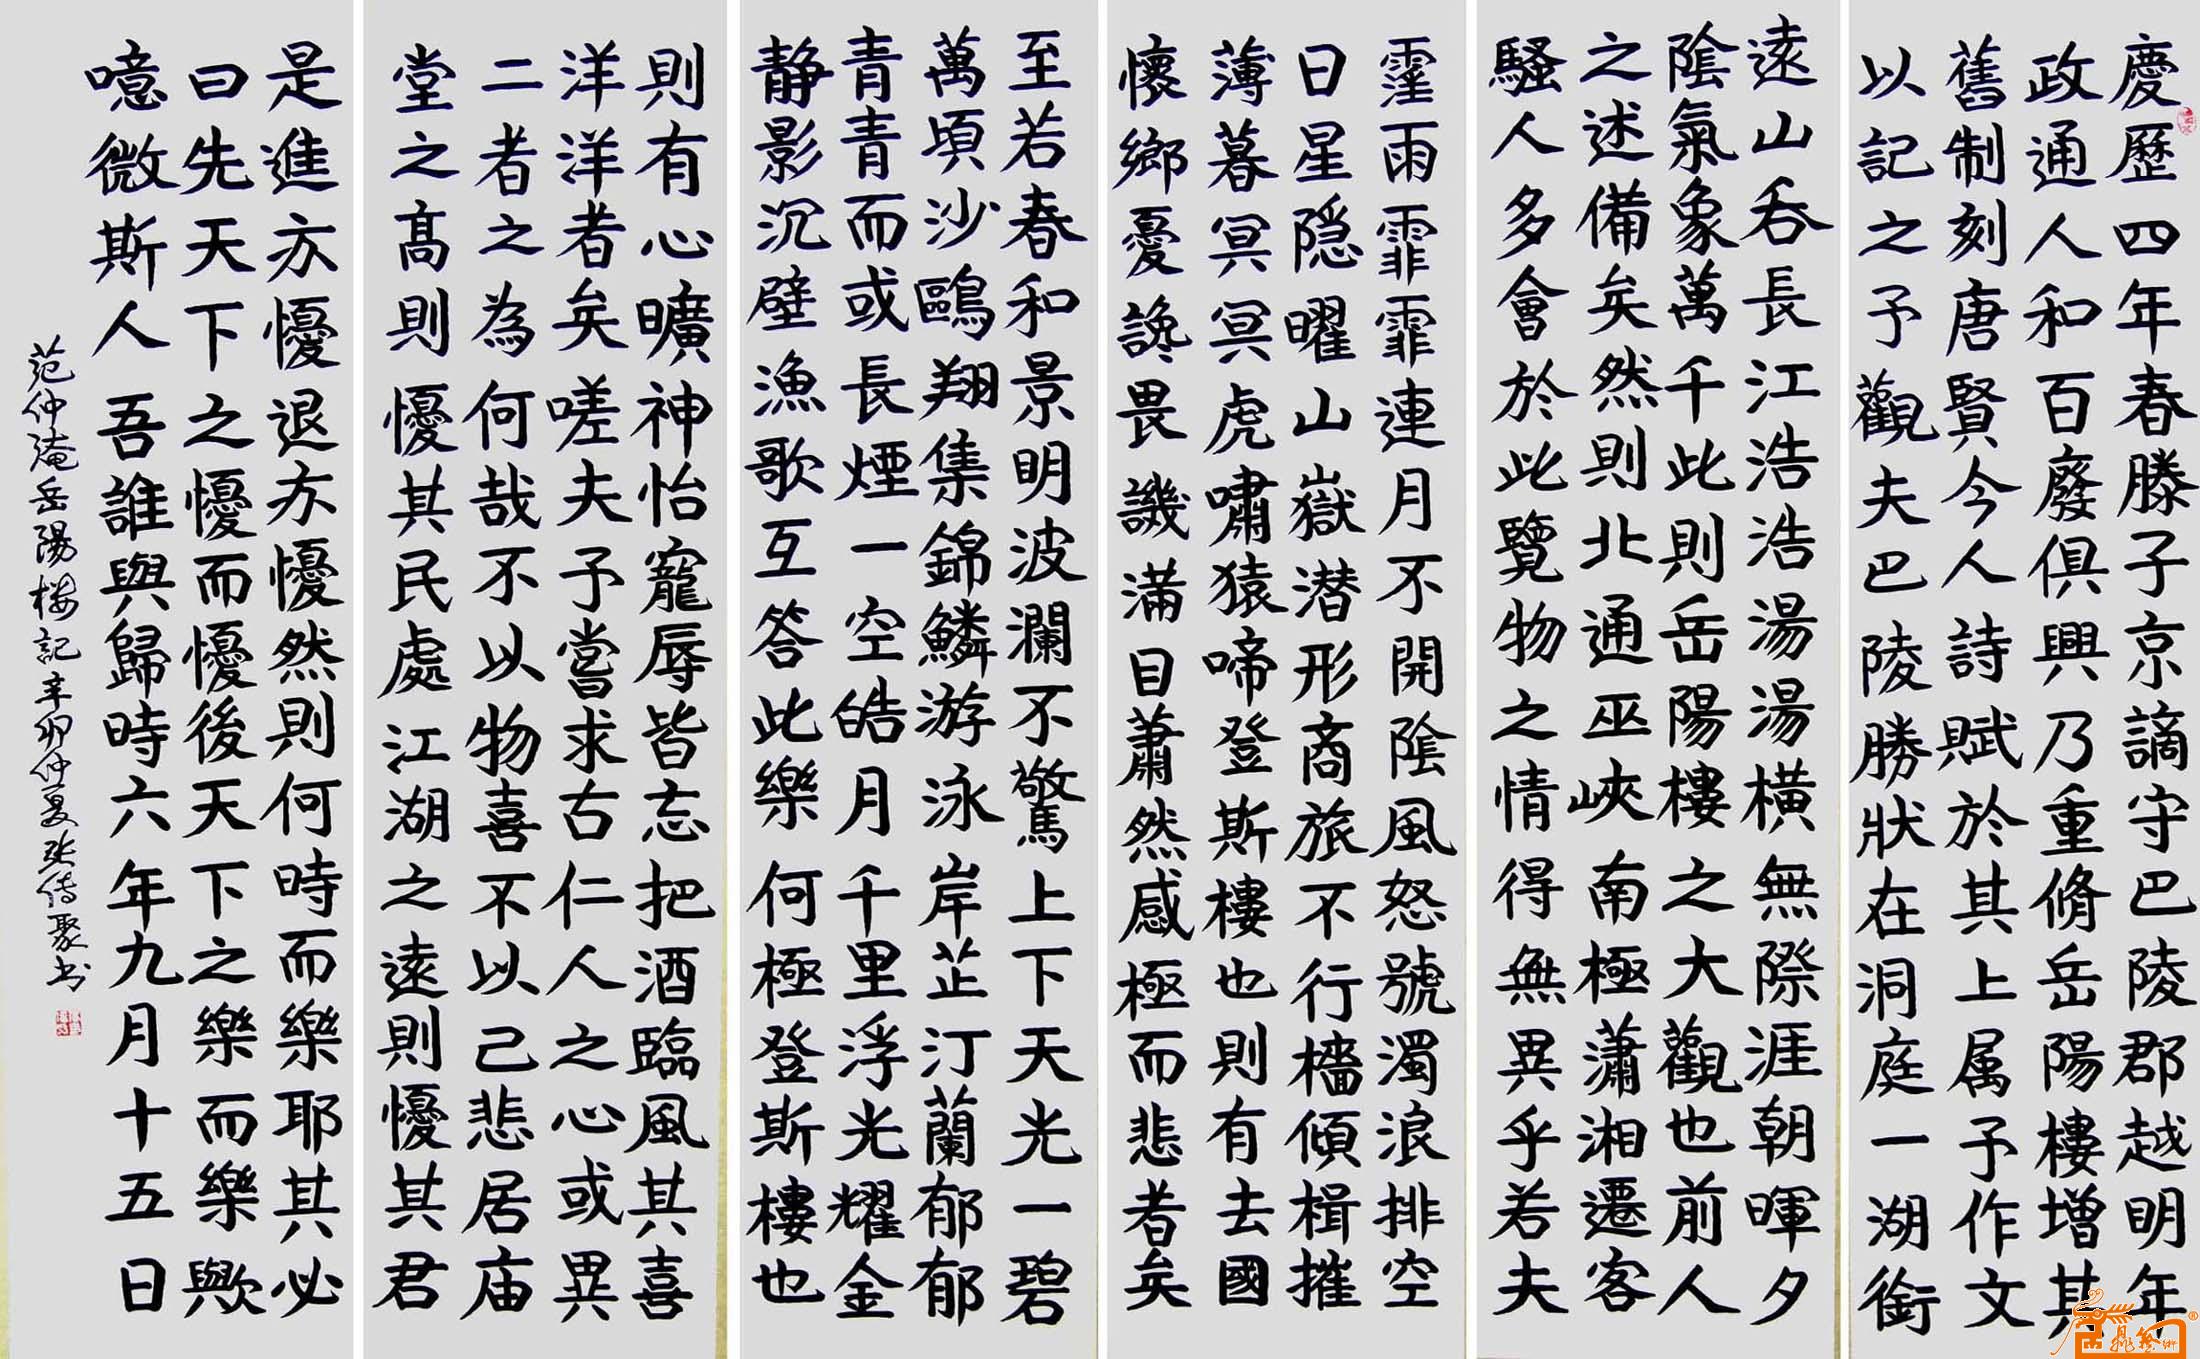 慶歷四年春滕子京謫守巴陵郡越明年
政通人和百廢俱興乃重脩岳陽樓增其
舊制刻唐賢今人詩賦於其上属予作文
以記之予觀夫巴陵勝狀在洞庭一湖銜
遠山吞長江浩浩湯湯橫無際涯朝暉夕
陰氣象萬千此則岳陽樓之大觀也前人
之述備矣然則北通巫峽南極瀟湘遷客
騷人多會於此覽物之情得無異乎若夫
霪雨霏霏連月不開陰風怒號濁浪排空
日星隱曜山嶽潜形商旅不行檣傾楫摧
薄暮冥冥虎嘯猿啼登斯樓也則有去國
懷鄉憂讒畏譏滿目蕭然感極而悲者矣
至若春和景明波瀾不驚上下天光一碧
萬頃沙鷗翔集錦鱗游泳岸芷汀蘭郁郁
青青而或長煙一空皓月千里浮光耀金
静影沉壁漁歌互答此樂何極登斯樓也
則有心曠神怡寵辱皆忘把酒臨風其喜
洋洋者矣嗟夫予嘗求古仁人之心或異
二者之為何哉不以物喜不以己悲居庙
堂之高則憂其民處江湖之遠則憂其君
是進亦憂退亦憂然則何時而樂耶其必
曰先天下之憂而憂後天下之樂而樂歟
噫微斯人吾誰與歸時六年九月十五日
范仲淹岳陽楼記辛卯仲夏张传聚书